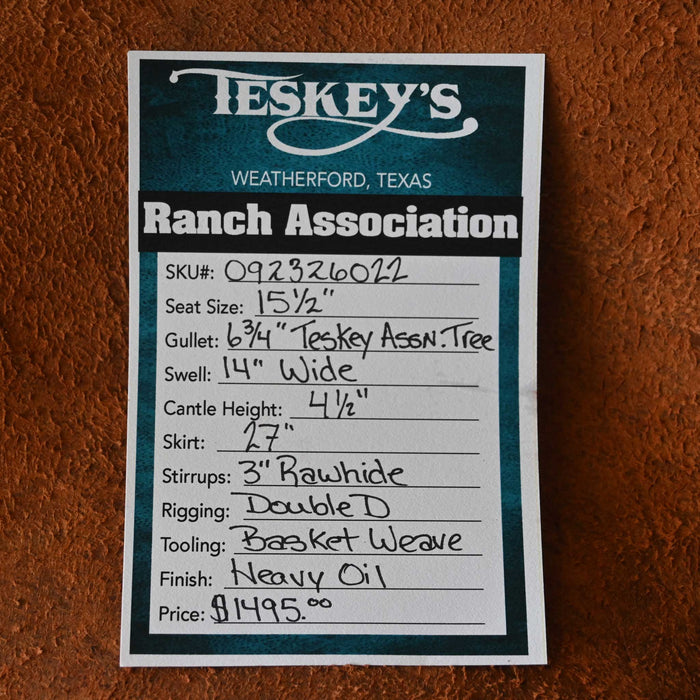 TESKEY'S
WEATHERFORD, TEXAS
Ranch Association
SKU#: 092326022
Seat Size: 15½"
Gullet: 6¾" Teskey Assn. Tree
Swell: 14" Wide
Cantle Height: 4½"
Skirt: 27"
Stirrups: 3" Rawhide
Rigging: Double D
Tooling: Basket Weave
Finish: Heavy Oil
Price: $1495.00